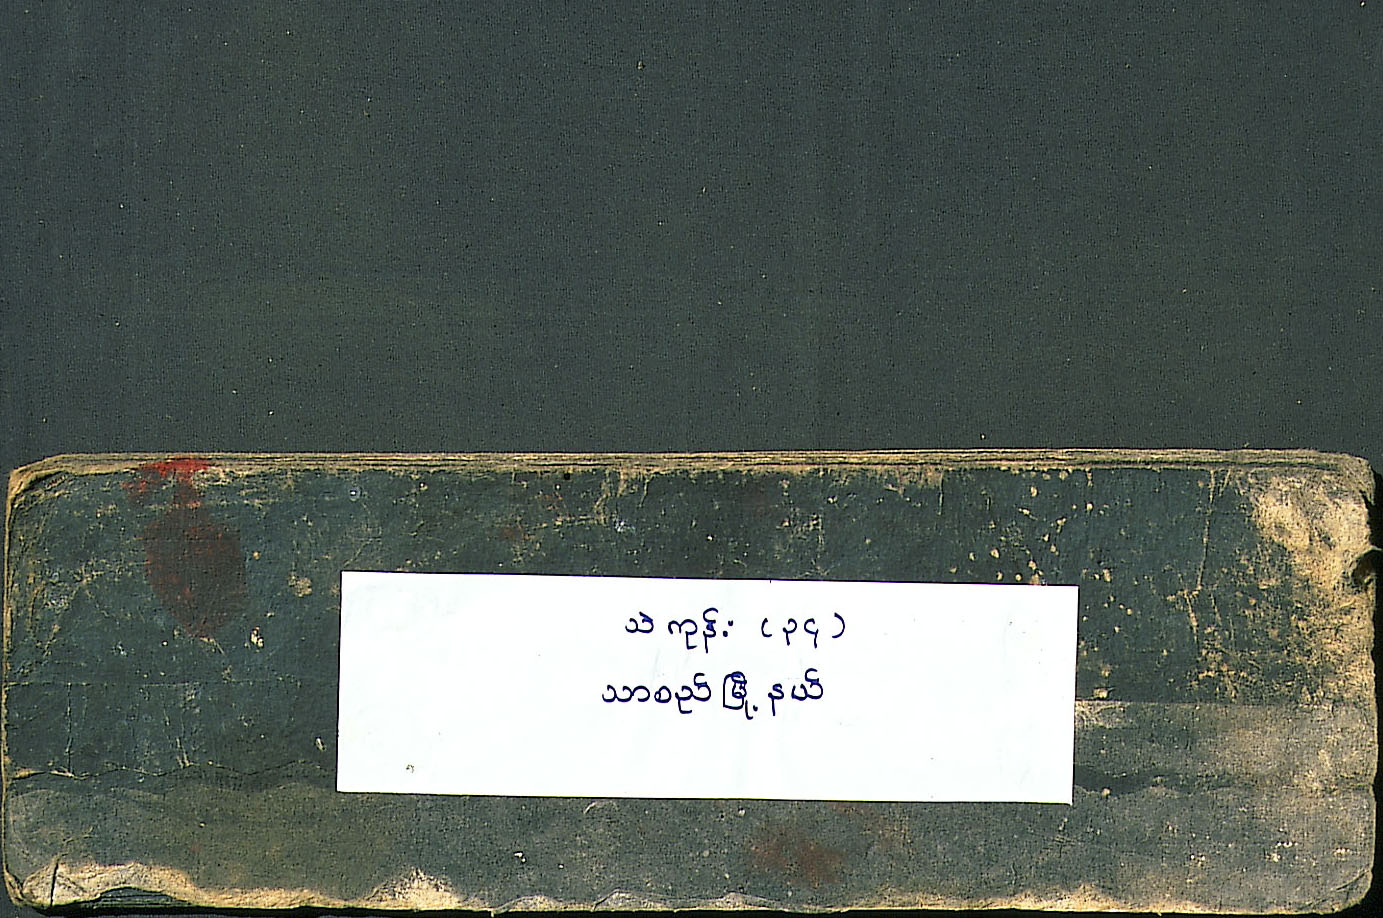 သဲကုန်း (၃၄)
သာစည်မြို့နယ်